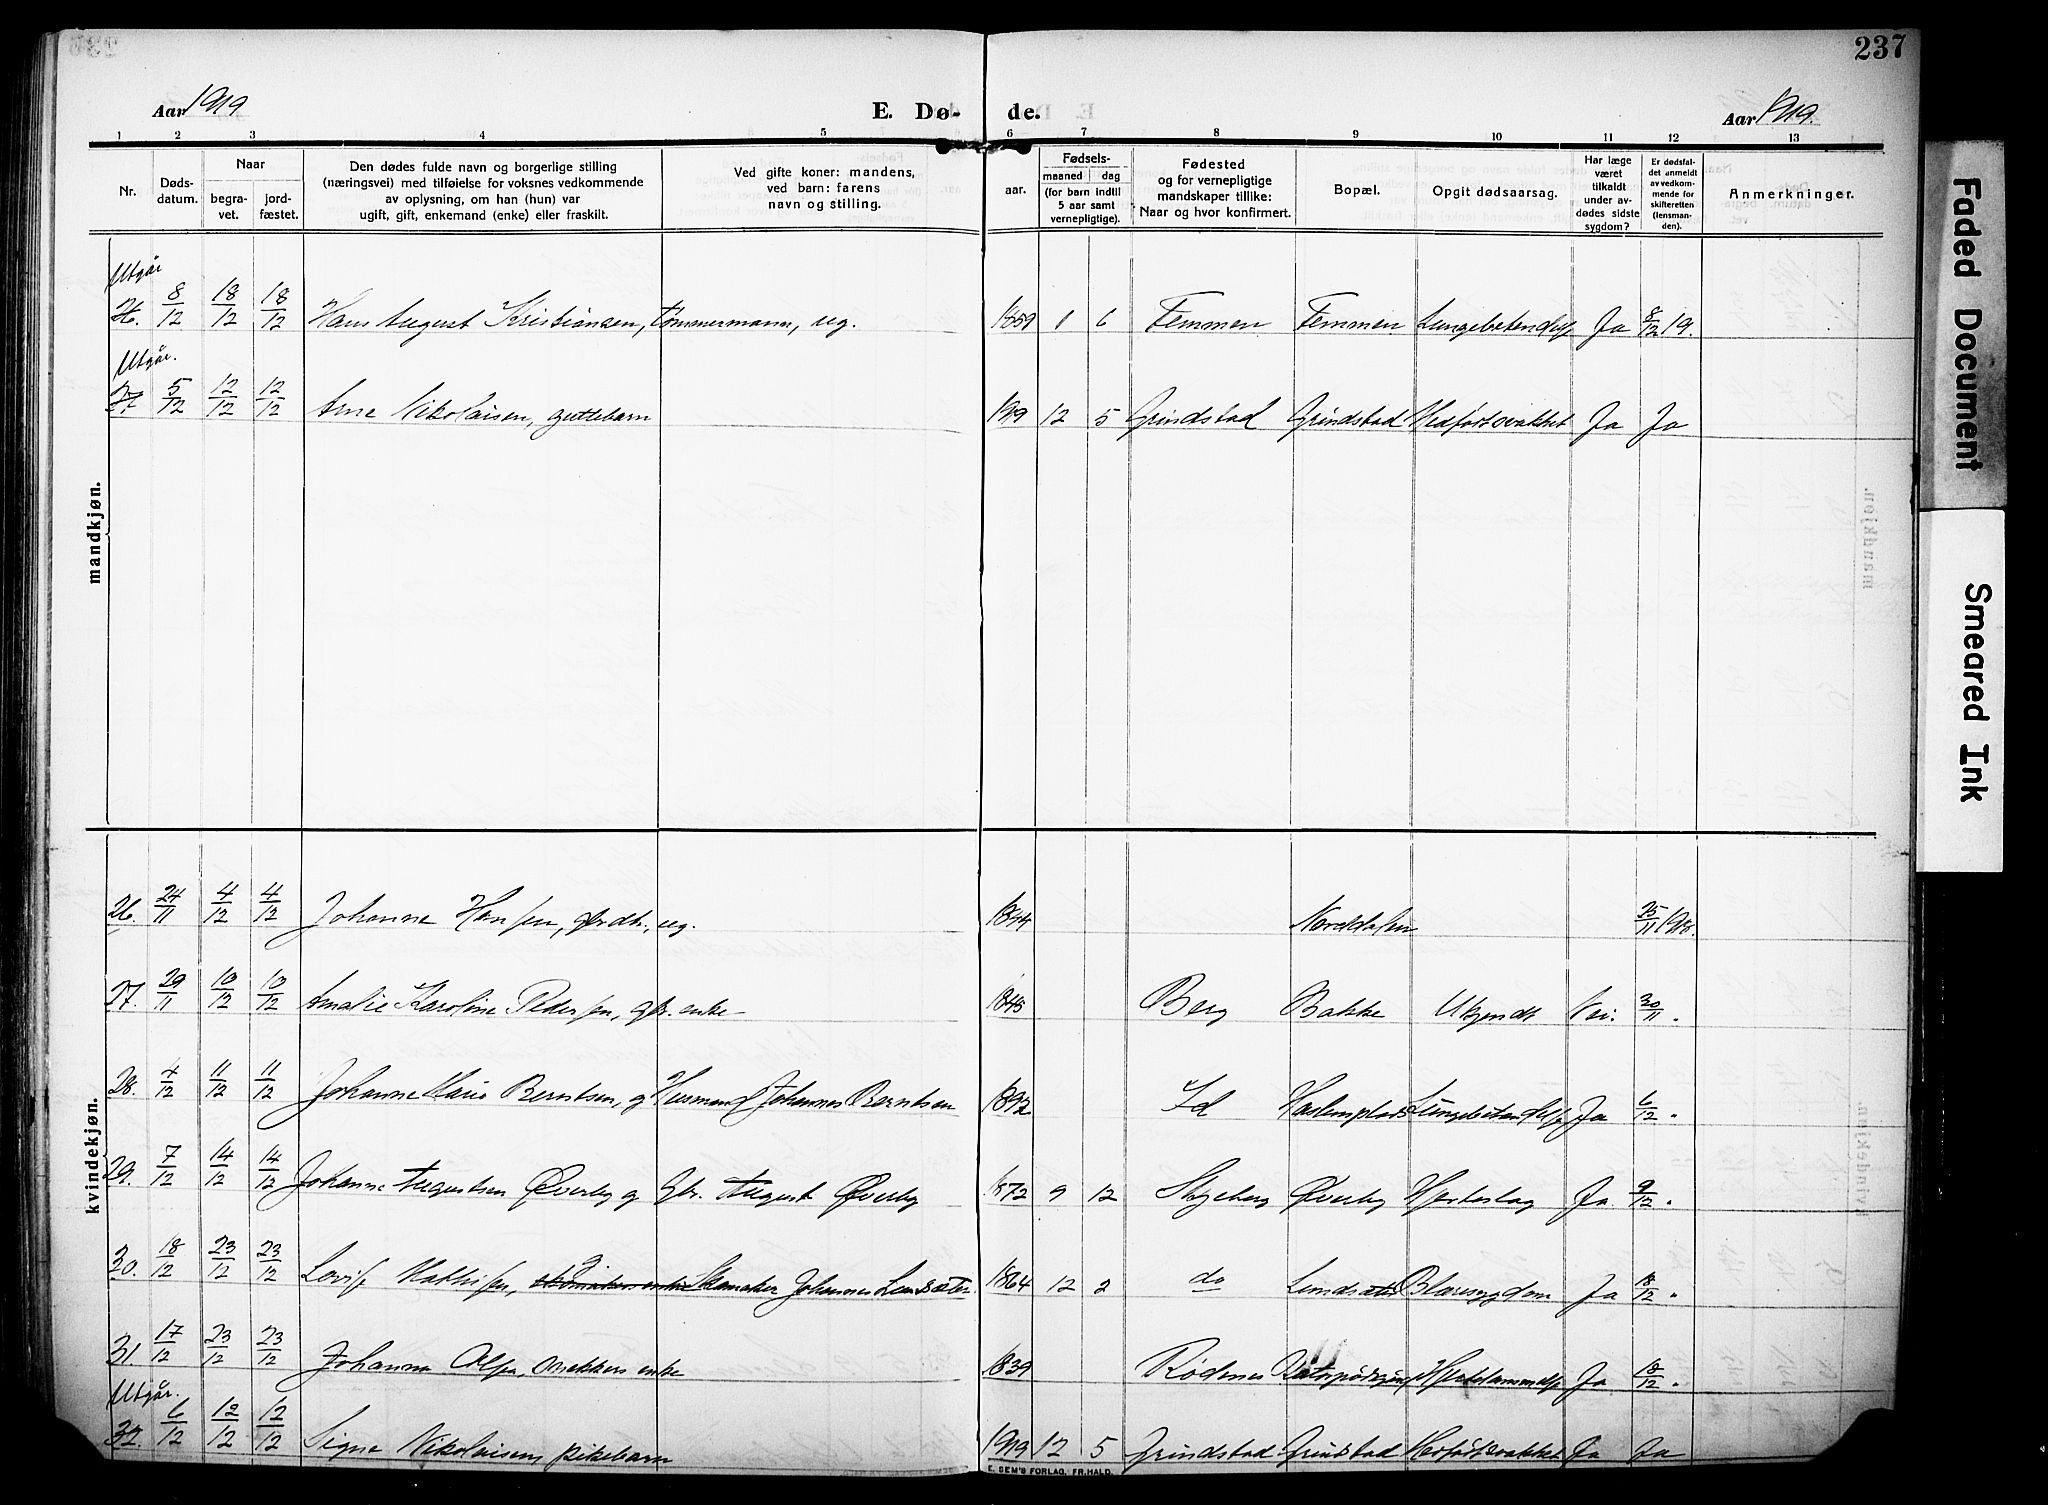 237
Aar 1919 E. Dø- de. Aar 1919.
1 2 3 4 5 6 7 8 9 10 11 12 13
Nr. Døds-datum. Naar begra-vet. jord-fæstet. Den dødes fulde navn og borgerlige stilling (næringsvei) med tilføielse for voksnes vedkommende av oplysning, om han (hun) var ugift, gift, enkemand (enke) eller fraskilt. Ved gifte koner: mandens, ved barn: farens navn og stilling. Fødsels- aar. maaned dag (for barn indtil 5 aar samt vernepligtige). Fødested og for vernepligtige mandskaper tillike: Naar og hvor konfirmert. Bopæl. Opgit dødsaarsag. Har læge været tilkaldt under av-dødes sidste sygdom? Er dødsfal-det anmeldt av vedkom-mende for skifteretten (lensman-den). Anmerkninger.
mandkjøn.
Utgår
26. 8/12 18/12 18/12 Hans August Kristiansen, tømmermann, ug. 1859 1 6 Femmen Femmen Lungebetendels Ja 8/12 19.
Utgår.
27 5/12 12/12 12/12 Arne Nikolaisen, guttebarn 1919 12 5 Grindstad Grindstad Medfødt svakhet Ja Ja
kvindekjøn.
26. 24/11 4/12 4/12 Johanne Hansen, grdr., ug. 1844 Norddalen 25/11 19
27. 29/11 10/12 10/12 Amalie Karoline Pedersen, gbr. enke 1845 Berg Bakke Ukjendt Nei. 30/11 "
28. 4/12 11/12 11/12 Johanne Marie Berntsen, g Husmand Johannes Berntsen Id Lungebetendelse Ja 6/12 "
29. 7/12 14/12 14/12 Johanne Augustsen Øverby g Gbr. August Øverby 1872 9 12 Skjeberg Øverby Hjerteslag Ja. 9/12 "
30. 18/12 23/12 23/12 Lovise Mathisen, Skomaker Johannes Lundsæter. 1864 12 2 do Lundsæter Blæresygdom Ja 18/12 "
31. 17/12 23/12 23/12 Johanna Olsen, snekkers enke 1839 Rødenes Ja 18/12 "
Utgår.
32. 6/12 12/12 12/12 Signe Nikolaisen, pikebarn 1919 12 5 Grindstad Grindstad Medfødt svakhet Ja Ja
E. SEM'S FORLAG, FR.HALD.
Faded Document
Smeared Ink